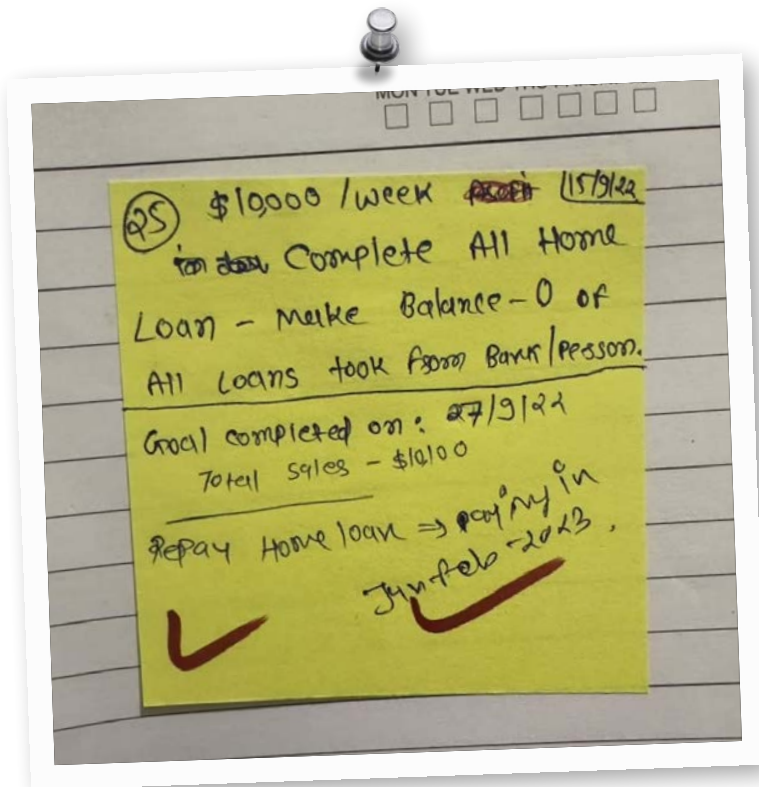 MON TUE WED THU FRI SAT SUN
25 $10,000 /week 15/9/22
Complete All Home
Loan - Make Balance - 0 of
All Loans took from Bank/Person.
Goal completed on : 27/9/22
Total Sales - $10,100
Repay Home loan ⇒ paying in
Jan-Feb-2023.